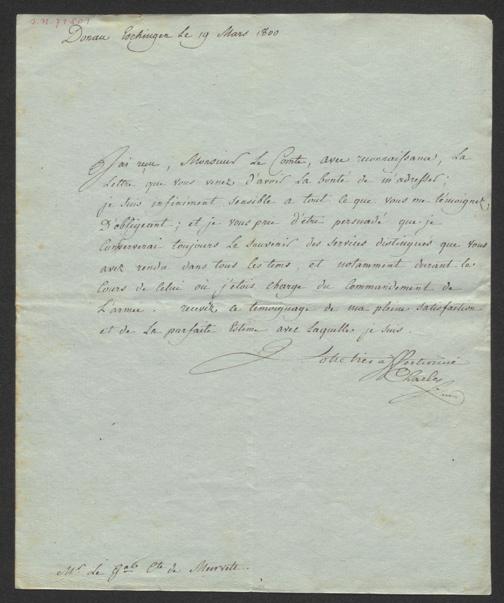 Donau Eschingen Le 19 Mars 1800
J'ai reçu, Monsieur Le Comte, avec reconnaissance, La
Lettre que vous venez d'avoir La bonté de m'adresser;
je suis infiniment sensible a tout ce que vous me témoignez
D'obligeant; et je vous prie d'être persuadé que je
Conserverai toujours Le Souvenir des Services distingués que vous
avez rendu dans tous les tems, et notamment durant le
Cours de Celui où j'étois chargé du Commandement de
L'armée. recevez ce temoignage de ma pleine Satisfaction
et de La parfaite Estime avec Laquelle je suis.
Votre tres affectionné
Charles
Mr. Le Cte de